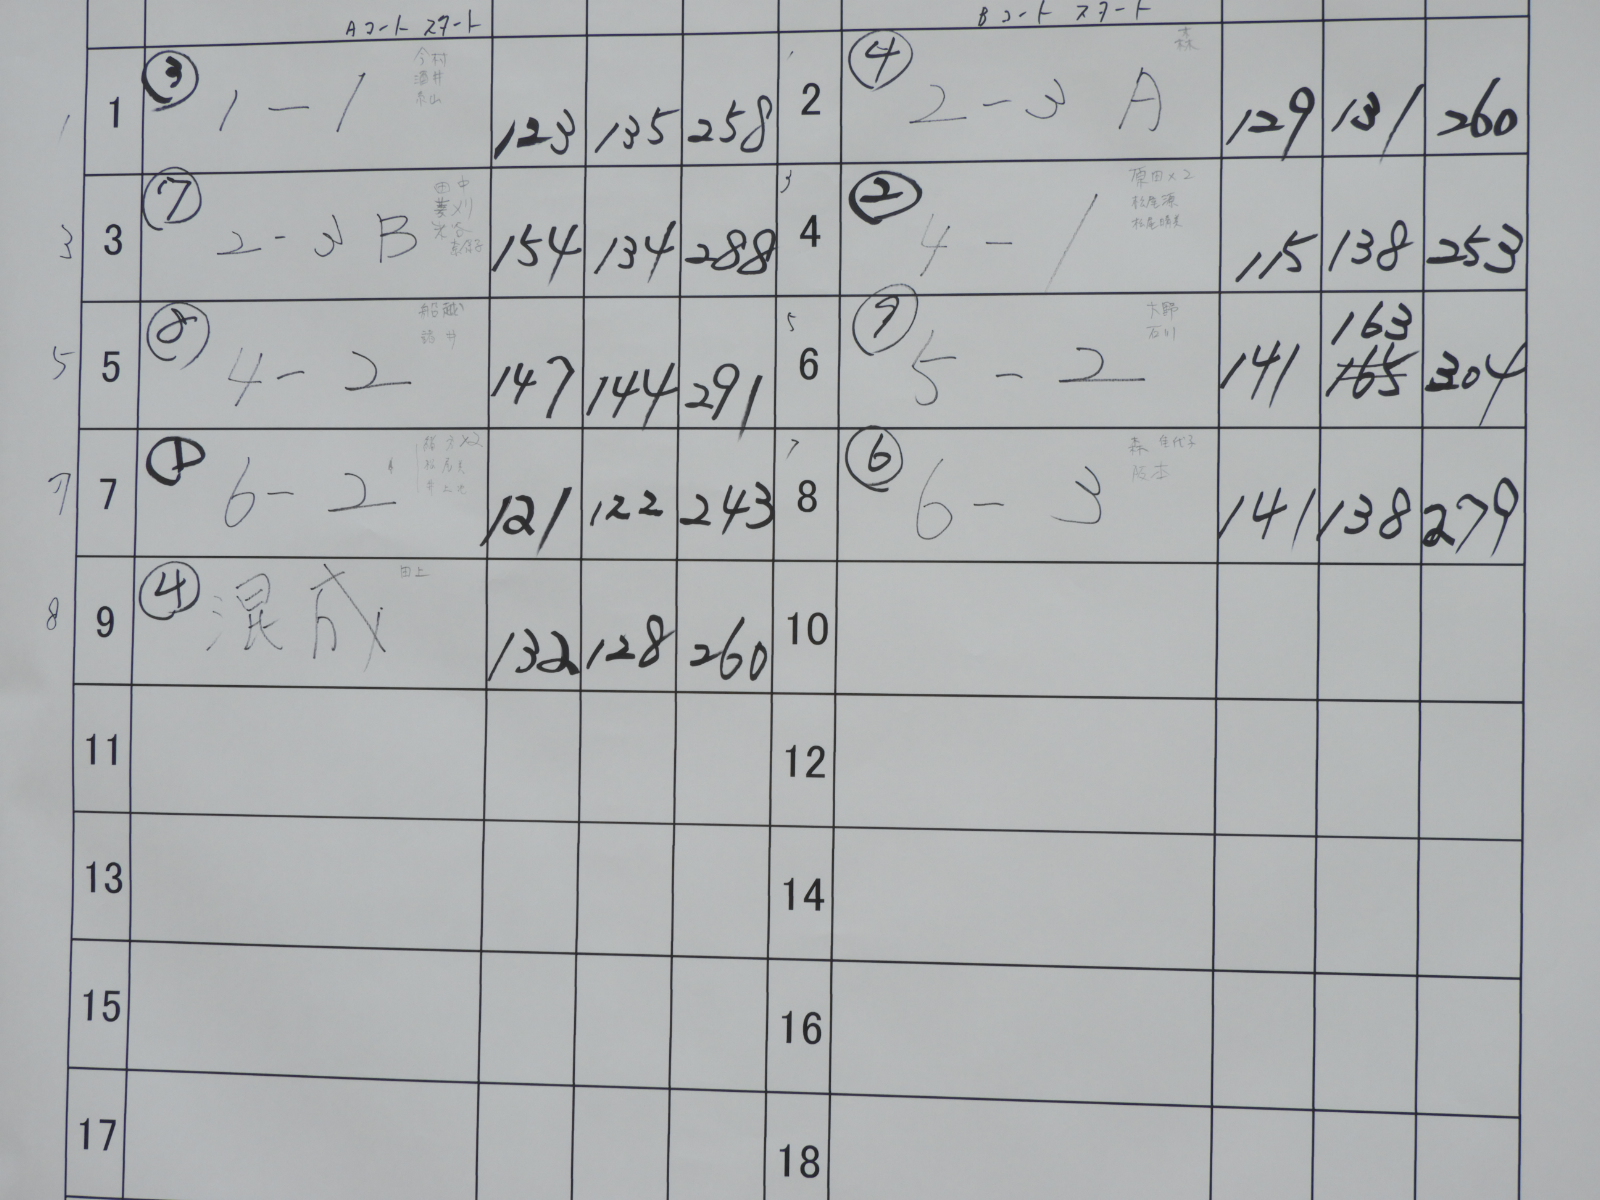 Aコート スタート
Bコート スタート
1 1 ③ 1-1 123 135 258
今村
酒井
2 ④ 2-3 A 森 129 131 260
3 3 ⑦ 2-3 B 154 134 288
田中
3 4 ② 4-1 115 138 253
原田×2
松尾
松尾
5 5 ⑧ 4-2 147 144 291
船越
5 6 ⑨ 5-2 141 163 165 304
石川
7 7 ① 6-2 121 122 243
7 8 ⑥ 6-3 141 138 279
森 佳代子
8 9 ④ 混成 田上 132 128 260
10
11
12
13
14
15
16
17
18